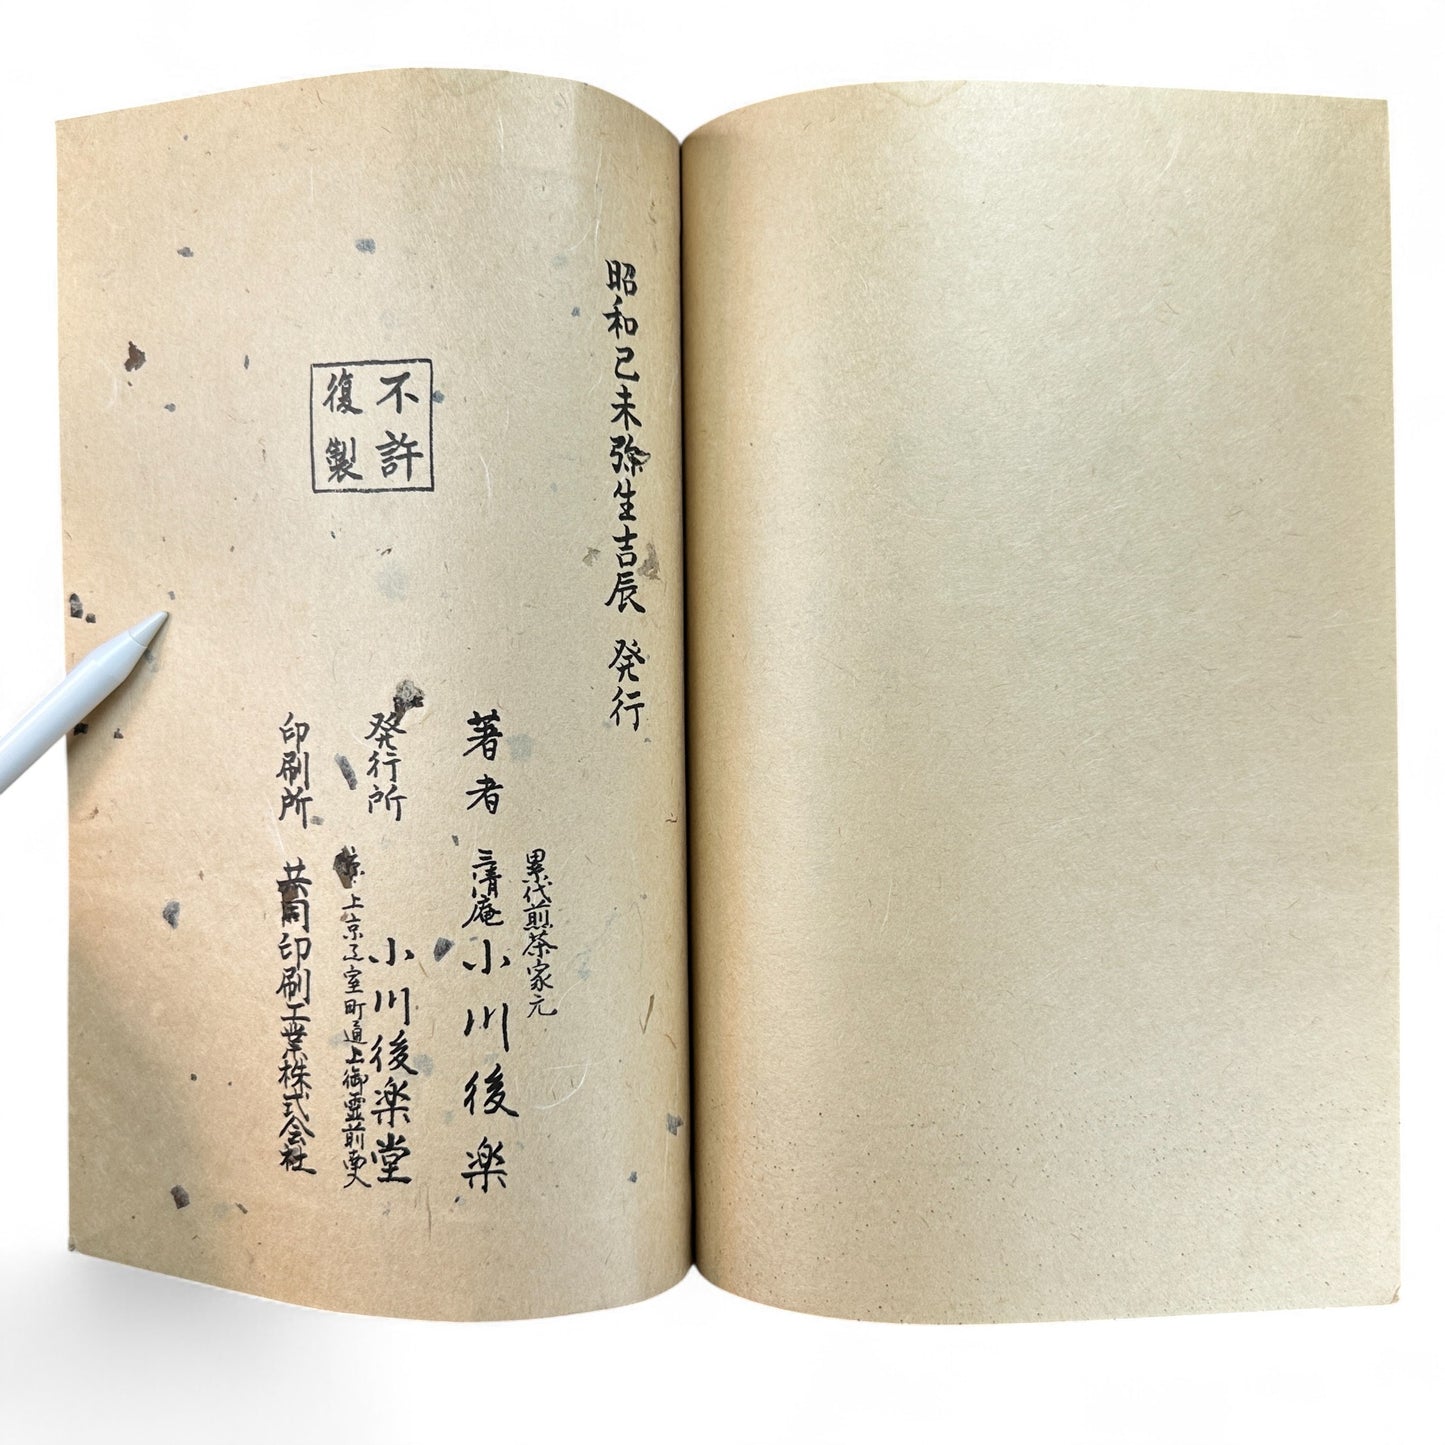 昭和己未弥生吉辰 発行
不許
復製
累代煎茶家元
著者 三清庵小川後楽
発行所 小川後楽堂
京 上京区室町通上御霊前南入
印刷所 共同印刷工業株式会社